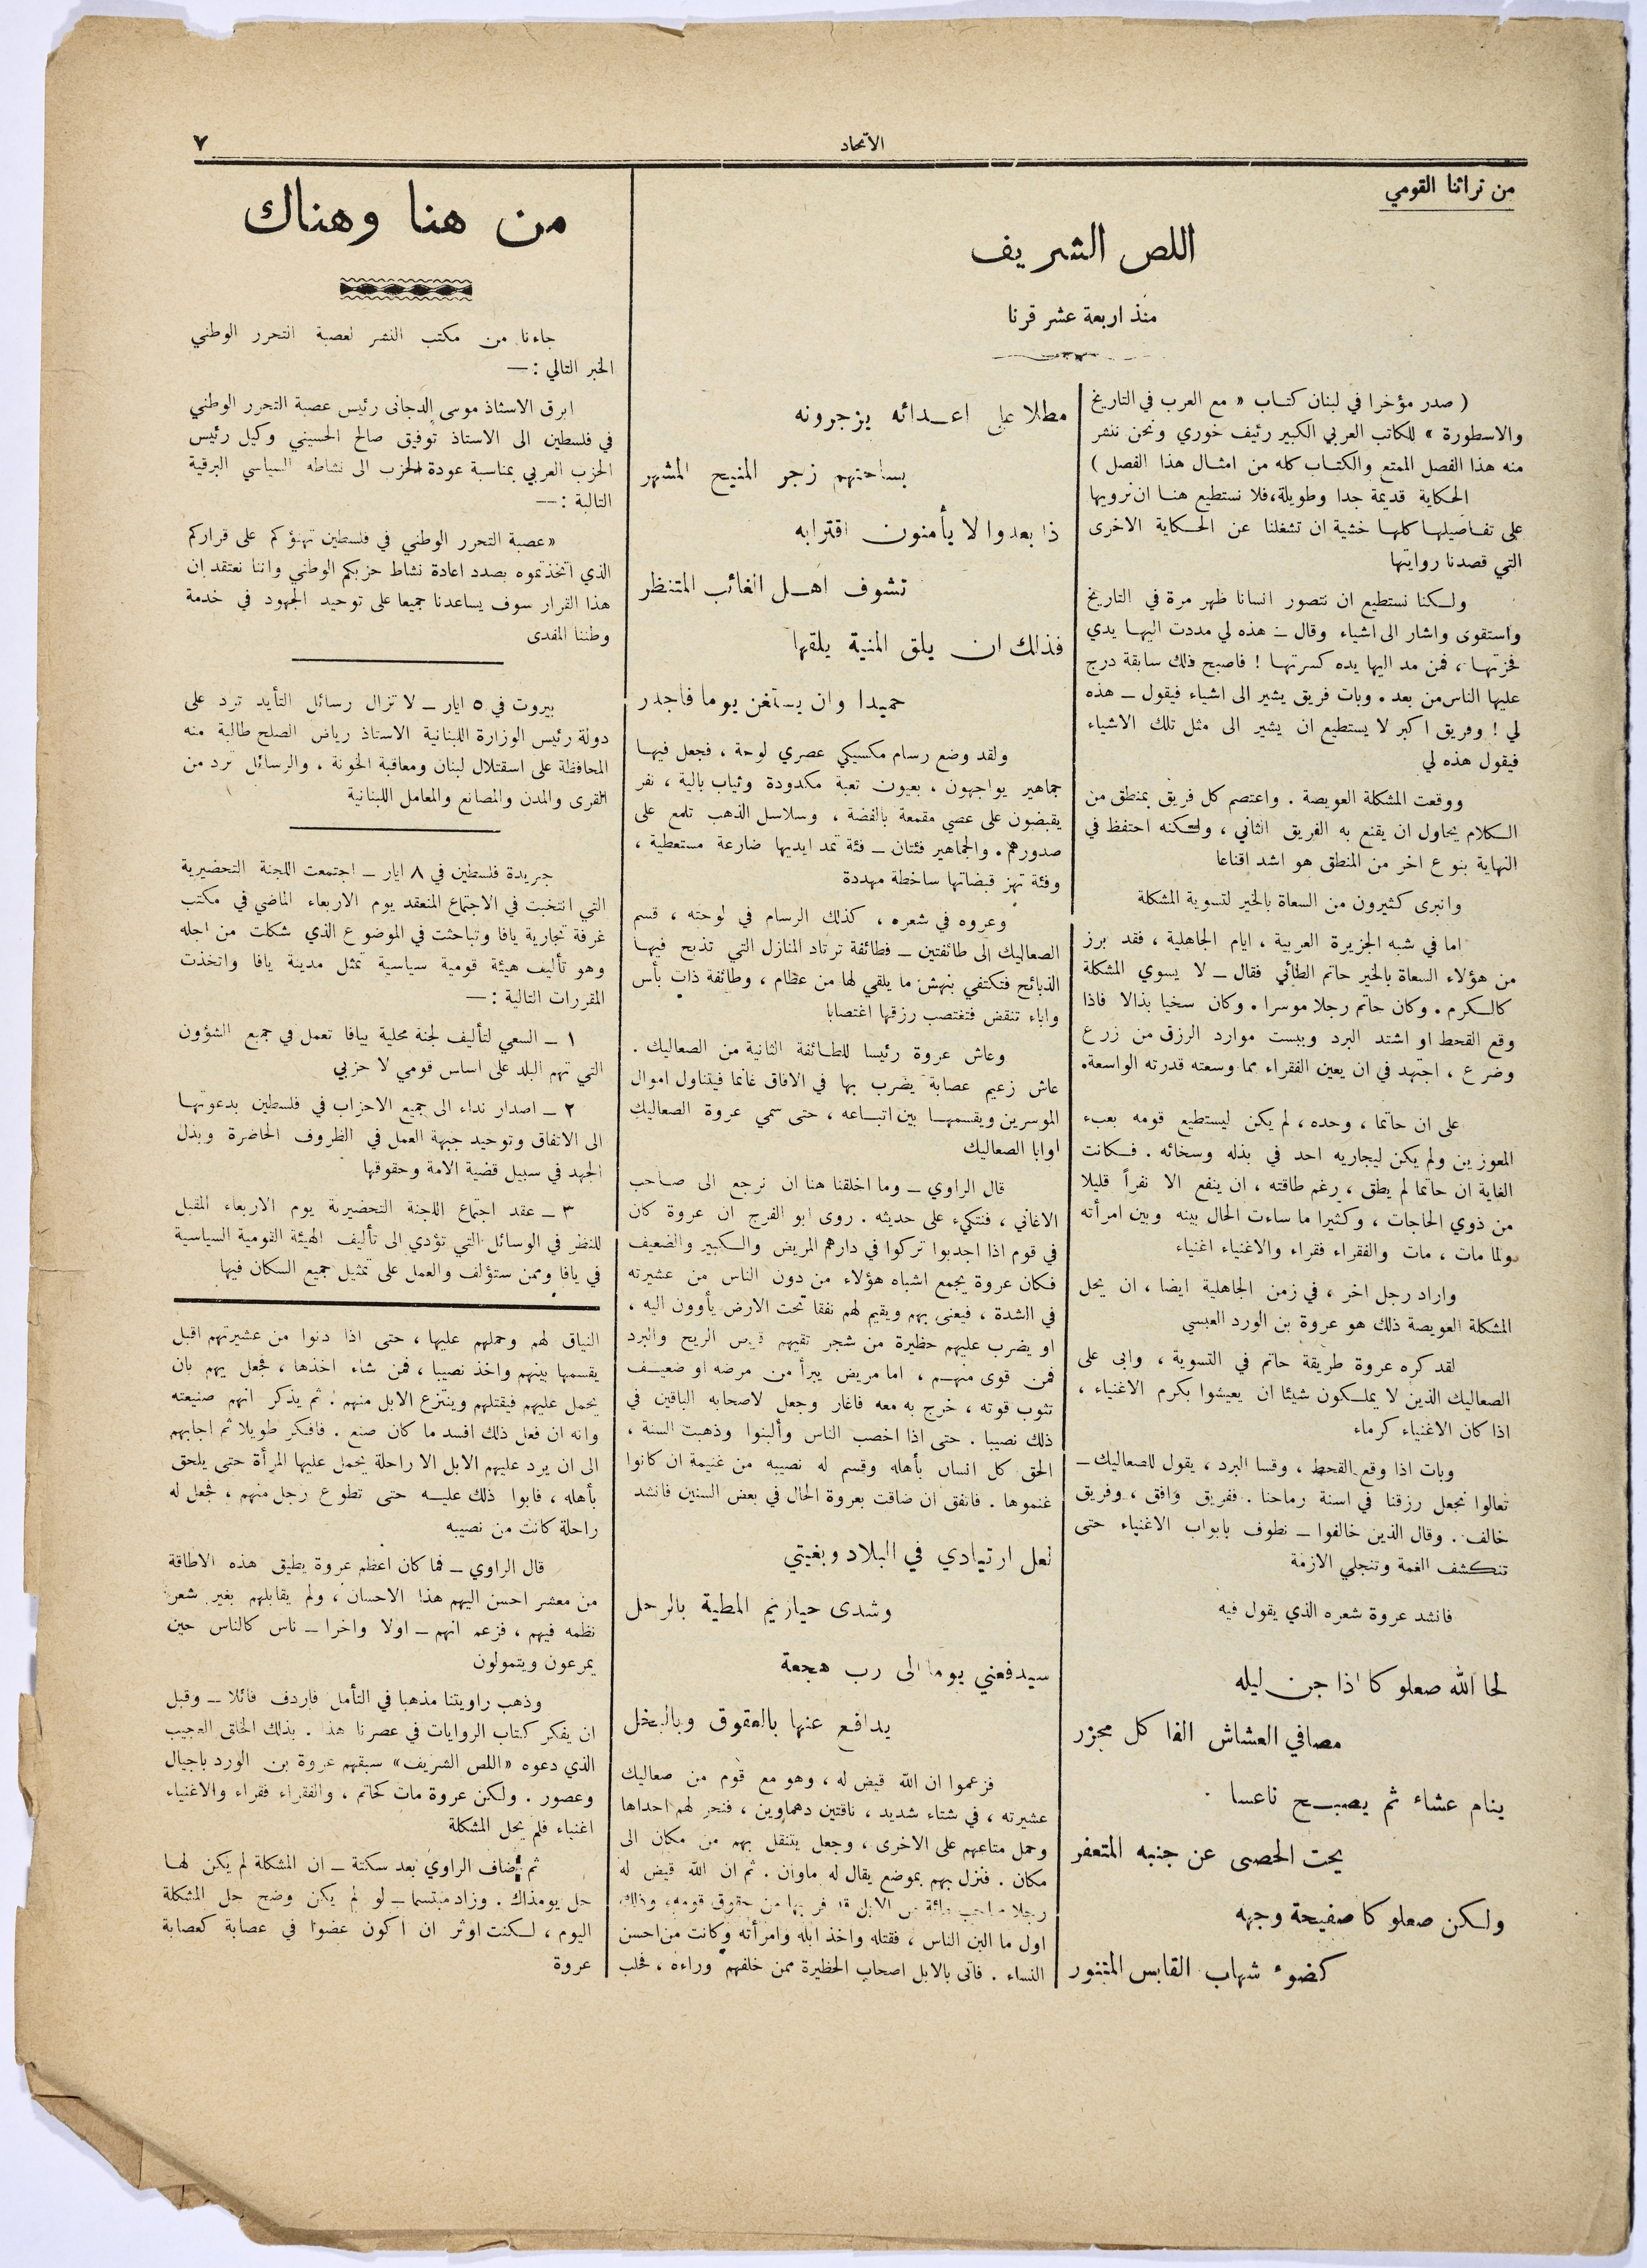 الاتحاد
٧
من تراثنا القومي
اللص الشريف
منذ اربعة عشر قرنا
( صدر مؤخرا في لبنان كتاب « مع العرب في التاريخ
والاسطورة » للكاتب العربي الكبير رئيف خوري ونحن ننشر
منه هذا الفصل الممتع والكتاب كله من امثال هذا الفصل )
الحكاية قديمة جدا وطويلة، فلا نستطيع هنا ان نرويها
على تفاصيلها كلها خشية ان تشغلنا عن الحكاية الاخرى
التي قصدنا روايتها
ولكنا نستطيع ان نتصور انسانا ظهر مرة في التاريخ
واستقوى واشار الى اشياء وقال – هذه لي مددت اليها يدي
فحزتها ، فمن مد اليها يده كسرتها ! فاصبح ذلك سابقة درج
عليها الناس من بعد . وبات فريق يشير الى اشياء فيقول – هذه
لي ! وفريق اكبر لا يستطيع ان يشير الى مثل تلك الاشياء
فيقول هذه لي
ووقعت المشكلة العويصة . واعتصم كل فريق بمنطق من
الكلام يحاول ان يقنع به الفريق الثاني ، ولكنه احتفظ في
النهاية بنوع اخر من المنطق هو اشد اقناعا
وانبرى كثيرون من السعاة بالخير لتسوية المشكلة
اما في شبه الجزيرة العربية ، ايام الجاهلية ، فقد برز
من هؤلاء السعاة بالخير حاتم الطائي فقال – لا يسوي المشكلة
كالكرم . وكان حاتم رجلا موسرا . وكان سخيا بذالا فاذا
وقع القحط او اشتد البرد ويبست موارد الرزق من زرع
وضرع ، اجتهد في ان يعين الفقراء بما وسعته قدرته الواسعة.
على ان حاتما ، وحده ، لم يكن ليستطيع قومه بعبء
المعوزين ولم يكن ليجاريه احد في بذله وسخائه . فكانت
الغاية ان حاتما لم يطق ، رغم طاقته ، ان ينفع الا نفراً قليلا
من ذوي الحاجات ، وكثيرا ما ساءت الحال بينه وبين امرأته
ولما مات ، مات والفقراء فقراء والاغنياء اغنياء
واراد رجل اخر ، في زمن الجاهلية ايضا ، ان يحل
المشكلة العويصة ذلك هو عروة بن الورد العبسي
لقد كره عروة طريقة حاتم في التسوية ، وابى على
الصعاليك الذين لا يملكون شيئا ان يعيشوا بكرم الاغنياء ،
اذا كان الاغنياء كرماء
وبات اذا وقع القحط ، وقسا البرد ، يقول للصعاليك –
تعالوا نجعل رزقنا في اسنة رماحنا . ففريق وافق ، وفريق
خالف . وقال الذين خالفوا – نطوف بابواب الاغنياء حتى
تنكشف الغمة وتنجلي الازمة
فانشد عروة شعره الذي يقول فيه
لحا الله صعلوكا اذا جن ليله
مصافي العشاش الفا كل مجزر
ينام عشاء ثم يصبح ناعسا
يحت الحصى عن جنبه المتعفر
ولكن صعلوكا صفيحة وجهه
كضوء شهاب القابس المتنور
مطلا على اعدائه يزجرونه
بساحتهم زجر المنيح المشهر
ذا بعدوا لا يأمنون اقترابه
تشوف اهل الغائب المتنظر
فذلك ان يلق المنية يلقها
حميدا وان يستغن يوما فاجدر
ولقد وضع رسام مكسيكي عصري لوحة ، فجعل فيها
جماهير يواجهون ، بعيون تعبة مكدودة وثياب بالية ، نفر
يقبضون على عصي مقمعة بالفضة ، وسلاسل الذهب تلمع على
صدورهم . والجماهير فئتان – فئة تمد ايديها ضارعة مستعطية ،
وفئة تهز قبضاتها ساخطة مهددة
وعروه في شعره ، كذلك الرسام في لوحته ، قسم
الصعاليك الى طائفتين – فطائفة ترتاد المنازل التي تذبح فيها
الذبائح فتكتفي بنهش ما يلقى لها من عظام ، وطائفة ذات بأس
واباء تنقض فتغتصب رزقها اغتصابا
وعاش عروة رئيسا للطائفة الثانية من الصعاليك .
عاش زعيم عصابة يضرب بها في الافاق غانما فيتناول اموال
الموسرين ويقسمها بين اتباعه ، حتى سمي عروة الصعاليك
اوابا الصعاليك
قال الراوي – وما اخلقنا هنا ان نرجع الى صاحب
الاغاني ، فنتكيء على حديثه . روى ابو الفرج ان عروة كان
في قوم اذا اجدبوا تركوا في دارهم المريض والكبير والضعيف
فكان عروة يجمع اشباه هؤلاء من دون الناس من عشيرته
في الشدة ، فيعنى بهم ويقيم لهم نفقا تحت الارض يأوون اليه ،
او يضرب عليهم حظيرة من شجر تقيهم قرس الريح والبرد
فمن قوى منهم ، اما مريض يبرأ من مرضه او ضعيف
تثوب قوته ، خرج به معه فاغار وجعل لاصحابه الباقين في
ذلك نصيبا . حتى اذا اخصب الناس وألبنوا وذهبت السنة ،
الحق كل انسان بأهله وقسم له نصيبه من غنيمة ان كانوا
غنموها . فاتفق ان ضاقت بعروة الحال في بعض السنين فانشد
لعل ارتيادي في البلاد وبغيتي
وشدى حيازيم المطية بالرحل
سيدفعني يوما الى رب هجمة
يدافع عنها بالعقوق وبالبخل
فزعموا ان الله قيض له ، وهو مع قوم من صعاليك
عشيرته ، في شتاء شديد ، ناقتين دهماوين ، فنحر لهم احداها
وحمل متاعهم على الاخرى ، وجعل يتنقل بهم من مكان الى
مكان . فنزل بهم بموضع يقال له ماوان . ثم ان الله قيض له
رجلا صاحب مائة من الابل قد فر بها من حقوق قومه، وذلك
اول ما البن الناس ، فقتله واخذ ابله وامرأته وكانت من احسن
النساء . فاتى بالابل اصحاب الحظيرة ممن خلفهم وراءه ، فحلب
من هنا وهناك
جاءنا من مكتب النشر لعصبة التحرر الوطني
الخبر التالي : —
ابرق الاستاذ موسى الدجاني رئيس عصبة التحرر الوطني
في فلسطين الى الاستاذ توفيق صالح الحسيني وكيل رئيس
الحزب العربي بمناسبة عودة الحزب الى نشاطه السياسي البرقية
التالية : —
« عصبة التحرر الوطني في فلسطين تهنؤكم على قراركم
الذي اتخذتموه بصدد اعادة نشاط حزبكم الوطني واننا نعتقد ان
هذا القرار سوف يساعدنا جميعا على توحيد الجهود في خدمة
وطننا المفدى
بيروت في ٥ ايار – لا تزال رسائل التأيد ترد على
دولة رئيس الوزارة اللبنانية الاستاذ رياض الصلح طالبة منه
المحافظة على استقلال لبنان ومعاقبة الخونة ، والرسائل ترد من
القرى والمدن والمصانع والمعامل اللبنانية
جريدة فلسطين في ٨ ايار – اجتمعت اللجنة التحضيرية
التي انتخبت في الاجتماع المنعقد يوم الاربعاء الماضي في مكتب
غرفة تجارية يافا وتباحثت في الموضوع الذي شكلت من اجله
وهو تأليف هيئة قومية سياسية تمثل مدينة يافا واتخذت
المقررات التالية : —
١ – السعي لتأليف لجنة محلية بيافا تعمل في جميع الشؤون
التي تهم البلد على اساس قومي لا حزبي
٢ – اصدار نداء الى جميع الاحزاب في فلسطين بدعوتها
الى الاتفاق وتوحيد جبهة العمل في الظروف الحاضرة وبذل
الجهد في سبيل قضية الامة وحقوقها
٣ – عقد اجتماع اللجنة التحضيرية يوم الاربعاء المقبل
للنظر في الوسائل التي تؤدي الى تأليف الهيئة القومية السياسية
في يافا وممن ستؤلف والعمل على تمثيل جميع السكان فيها
النياق لهم وحملهم عليها ، حتى اذا دنوا من عشيرتهم اقبل
يقسمها بينهم واخذ نصيبا ، فمن شاء اخذها ، فجعل يهم بان
يحمل عليهم فيقتلهم وينتزع الابل منهم : ثم يذكر انهم صنيعته
وانه ان فعل ذلك افسد ما كان صنع . فافكر طويلا ثم اجابهم
الى ان يرد عليهم الابل الا راحلة يحمل عليها المرأة حتى يلحق
بأهله ، فابوا ذلك عليه حتى تطوع رجل منهم ، فجعل له
راحلة كانت من نصيبه
قال الراوي – فما كان اعظم عروة يطيق هذه الاطاقة
من معشر احسن اليهم هذا الاحسان ، ولم يقابلهم بغير شعر
نظمه فيهم ، فزعم انهم – اولا واخرا – ناس كالناس حين
يمرعون ويتمولون
وذهب راويتنا مذهبا في التأمل فاردف قائلا – وقبل
ان يفكر كتاب الروايات في عصرنا هذا . بذلك الخلق العجيب
الذي دعوه «اللص الشريف» سبقهم عروة بن الورد باجيال
وعصور . ولكن عروة مات كحاتم ، والفقراء فقراء والاغنياء
اغنياء فلم يحل المشكلة
ثم اضاف الراوي بعد سكتة – ان المشكلة لم يكن لها
حل يومذاك . وزاد مبتسما – لو لم يكن وضح حل المشكلة
اليوم ، لكنت اوثر ان اكون عضوا في عصابة كعصابة
عروة